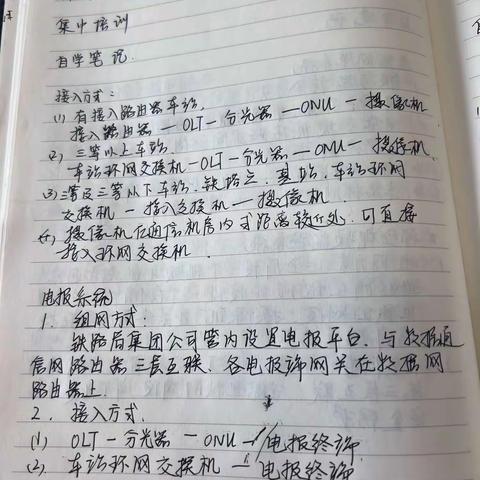 集中培训
自学笔记.
接入方式:
(1) 有接入路由器车站,
接入路由器 — OLT — 分光器 — ONU — 摄像机
(2) 三等以上车站.
车站环网交换机 — OLT — 分光器 — ONU — 摄像机.
(3) 三等及三等以下车站、铁路之、基站、车站环网
交换机 — 接入交换机 — 摄像机.
(4) 摄像机在通信机房内或距离较近处.可直接
接入环网交换机.
电报系统
1. 组网方式:
铁路局集团公司管内设置电报平台.与数据通
信网路由器三层互联.各电报端网关在数据网
路由器上.
2. 接入方式.
(1) OLT — 分光器 — ONU — 电报终端
(2). 车站环网交换机 — 电报终端